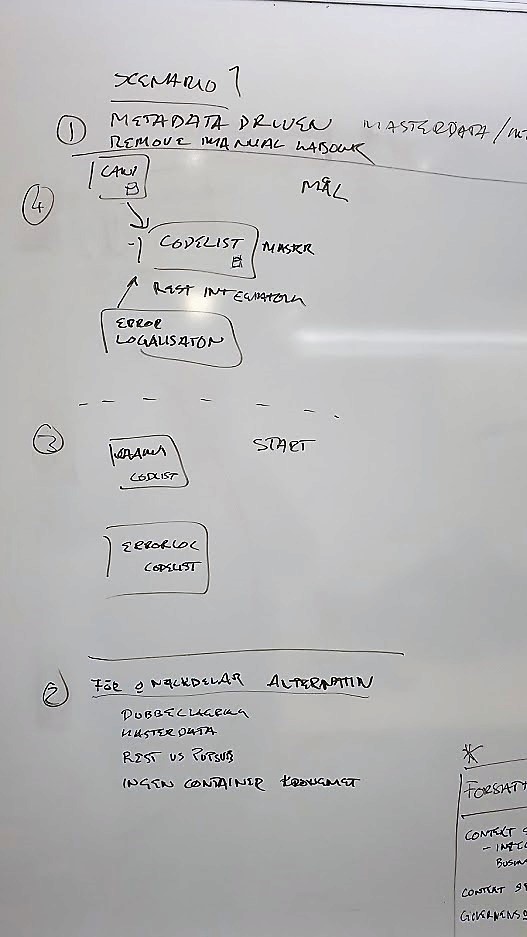 SCENARIO 1
① METADATA DRIVEN MASTERDATA/
REMOVE MANUAL LABOUR
④
MÅL
CODELIST MASTER
REST INTEGRATION
ERROR
LOCALISATON
③
START
CODLIST
ERRORLOC
CODELIST
② FÖR o NACKDELAR ALTERNATIV
DUBBELLAGRING
MASTERDATA
REST VS PUBSUB
INGEN CONTAINER
*
FORSATT
CONTEXT S
CONTEXT SE
GOVERNENS